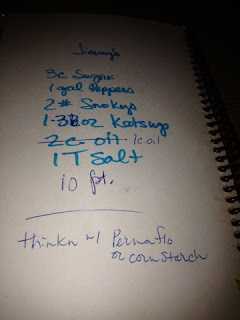 Jimmy's
3c Sugar
1 gal Peppers
2# Smokys
1-32oz Katsup
2c oil 1c oil
1T Salt
10 pt.
thinkn w/ Permaflo
or cornstarch